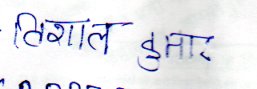 विशाल कुमार